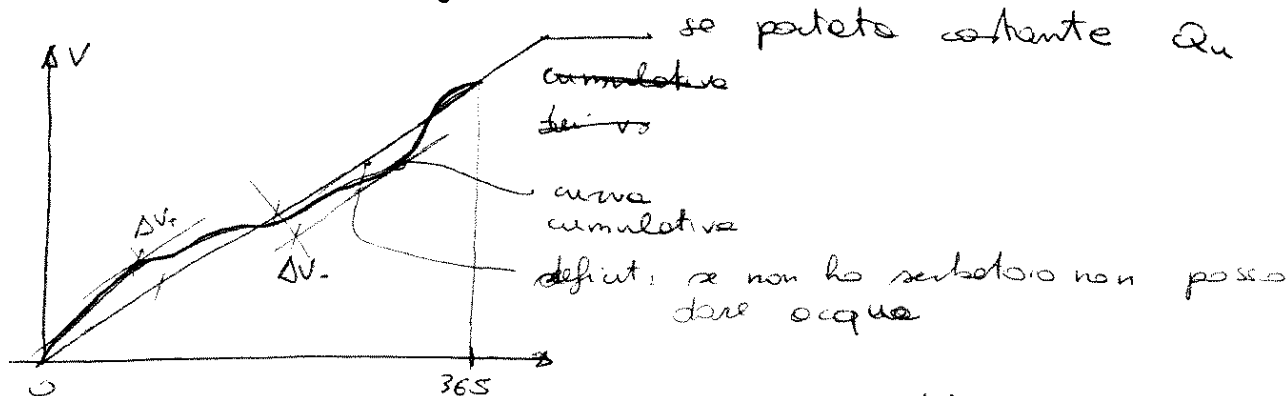 ΔV
se portata costante Qu
cumulativa
curva
cumulativa
ΔV+
ΔV-
deficit: se non ho serbatoio non posso
dare acqua
0
365